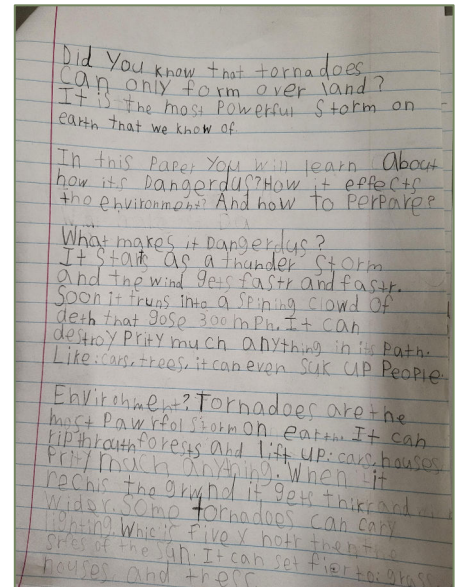 Did You know that tornadoes
can only form over land?
It is the most Powerful Storm on
earth that we know of.
In this Paper You will learn About
how its Dangerdus? How it effects
the environment? And how to Perpare?
What makes it Dangerdus?
It Starts as a thunder Storm
and the wind gets fastr and fastr.
Soon it truns into a Spining clowd of
deth that gose 300 mPh. It can
destroy Prity much anything in its Path.
Like: cars, trees, it can even Suk UP PeoPle.
Environment? Tornadoes are the
most Pawrfol storm on earth. It can
rip through forests and lift UP: cars, houses
Prity much anything. When it
rechis the grwnd it gets thikr and
widor. Some tornadoes can cary
lighting. Which is five X hotr then the
of the Sun. It can set fier to: grass
houses, and